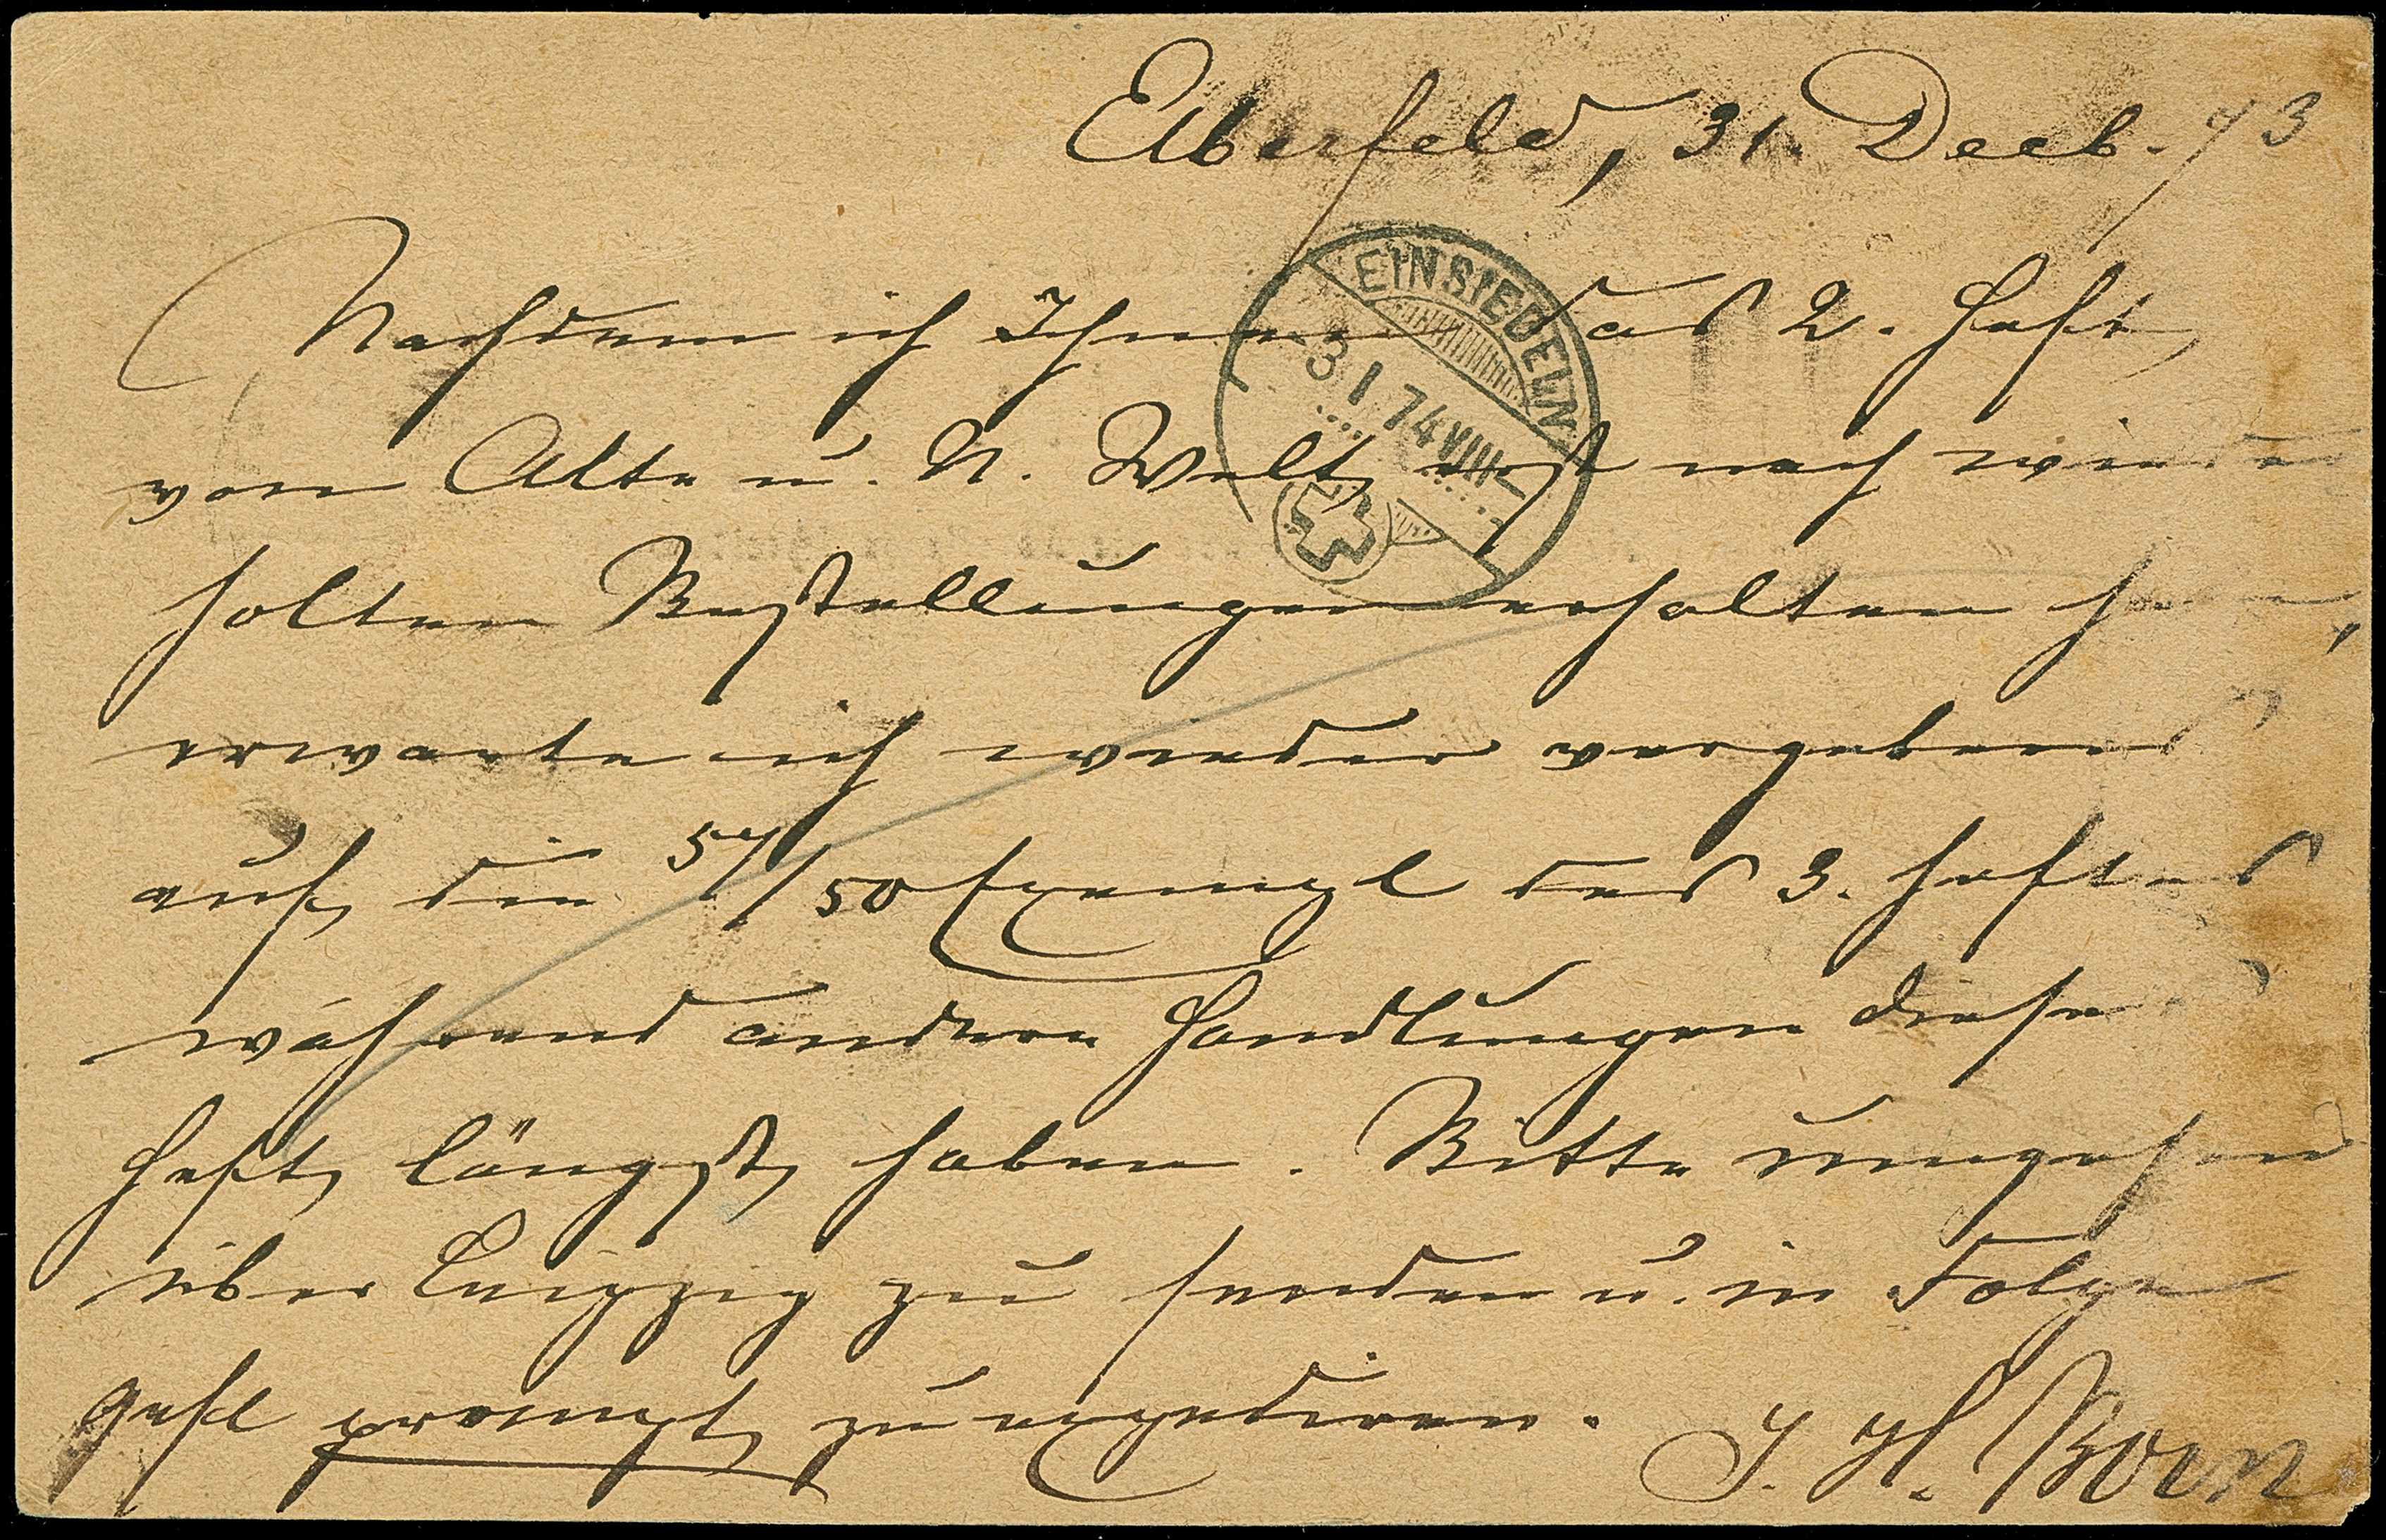 Elberfeld, 31. Decb. 73
Nachdem ich Ihnen das 2. Heft
von Alte u. N. Welt erst nach wieder
holten Bestellungen erhalten
erwarte ich wieder vergebens
auf die 57/50 Exempl des 3. Heftes
während andere Handlungen diese
Heft längst haben. Bitte umgehend
über Leipzig zu senden u. in Folge
gefl prompt zu expediren.
J. H. Born
EINSIEDELN
3 I 74 VIII